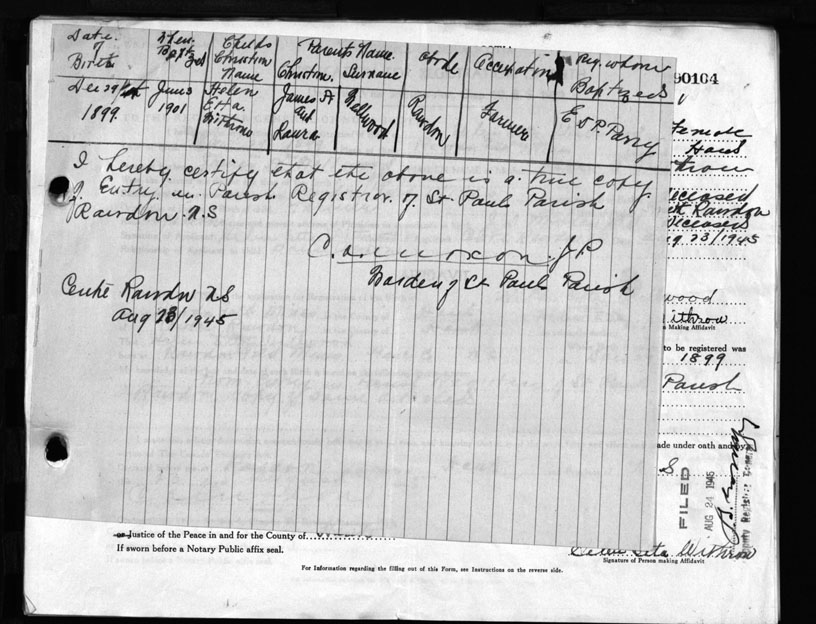 Date of Birth
When Bapt zed
Childs Christian Name
Parents Name.
Christian. Surname
abode
Occupation
By whom Baptized
Dec 29
1899.
June 3 1901
Helen Etta
James A and Laura
Wellwood
Rawdon
Farmer
E P. Parry
I hereby certify that the above is a true copy
of Entry in Parish Registrar of St Pauls Parish
Rawdon N.S
J.P
Warden of St Pauls Parish
Centre Rawdon N S
Aug 23/1945
90164
Female
deceased
Rawdon
Deceased
23/1945
wood
ithrow
n Making Affidavit
to be registered was
1899
Parish
ade under oath and by
S
FILED
AUG 24 1945
Justice of the Peace in and for the County of
If sworn before a Notary Public affix seal.
Etta Withrow
Signature of Person making Affidavit
For Information regarding the filling out of this Form, see Instructions on the reverse side.